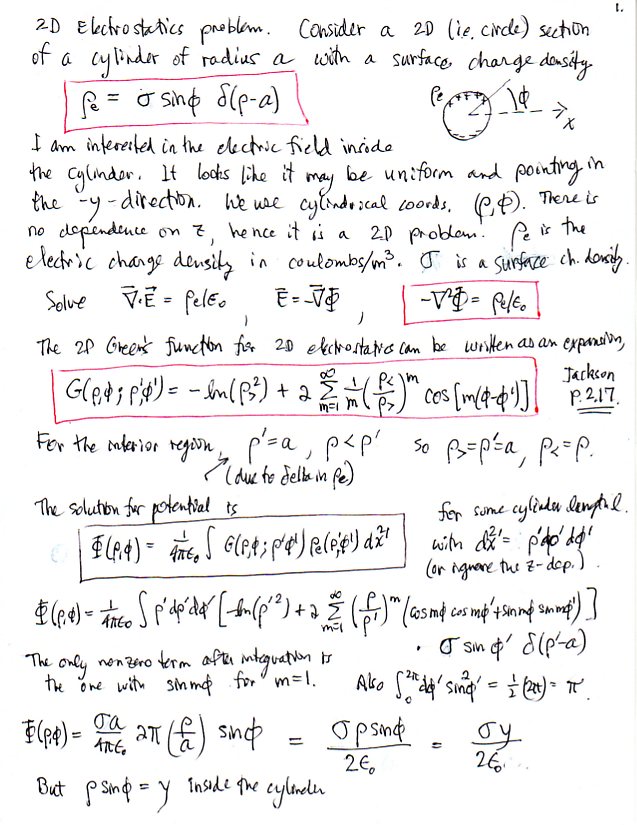 1.
2D Electrostatics problem. Consider a 2D (i.e. circle) section
of a cylinder of radius a with a surface charge density
ρₑ = σ sinϕ δ(ρ-a)
ρₑ +++ ϕ x
I am interested in the electric field inside
the cylinder. It looks like it may be uniform and pointing in
the -y-direction. We use cylindrical coords. (ρ,ϕ). There is
no dependence on z, hence it is a 2D problem. ρₑ is the
electric charge density in coulombs/m³. σ is a surface ch. density.
Solve ∇⃗·E⃗ = ρₑ/ε₀ , E⃗ = -∇⃗Φ , -∇²Φ = ρₑ/ε₀
The 2D Green's function for 2D electrostatics can be written as an expansion,
G(ρ,ϕ; ρ',ϕ') = -ln(ρ>²) + 2 Σ_{m=1}^{∞} 1/m (ρ</ρ>)^m cos[m(ϕ-ϕ')] Jackson p. 2.17.
For the interior region, ρ'=a, ρ<ρ' so ρ>=ρ'=a, ρ<=ρ.
(due to delta in ρₑ)
The solution for potential is for some cylinder length l.
Φ(ρ,ϕ) = 1/4πε₀ ∫ G(ρ,ϕ; ρ'ϕ') ρₑ(ρ',ϕ') dx²' with dx²' = ρ'dρ'dϕ'
(or ignore the z-dep.)
Φ(ρ,ϕ) = 1/4πε₀ ∫ ρ'dρ'dϕ' [-ln(ρ'²) + 2 Σ_{m=1}^{∞} (ρ/ρ')^m (cos mϕ cos mϕ' + sin mϕ sin mϕ')]
· σ sin ϕ' δ(ρ'-a)
The only nonzero term after integration is
the one with sin mϕ for m=1. Also ∫₀^{2π} dϕ' sin²ϕ' = ½ (2π) = π.
Φ(ρ,ϕ) = σa/4πε₀ 2π (ρ/a) sinϕ = σρsinϕ/2ε₀ = σy/2ε₀.
But ρ sinϕ = y inside the cylinder